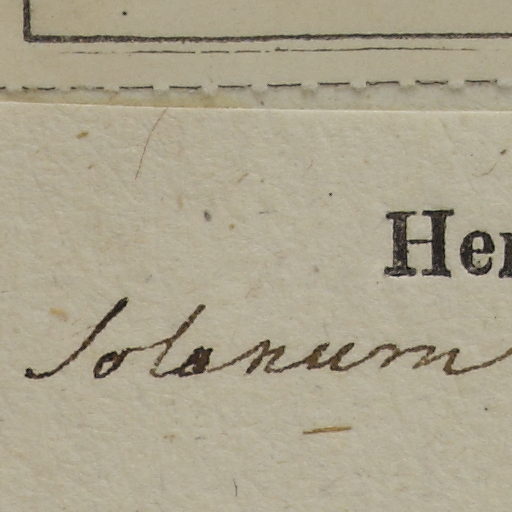 Her
Solanum